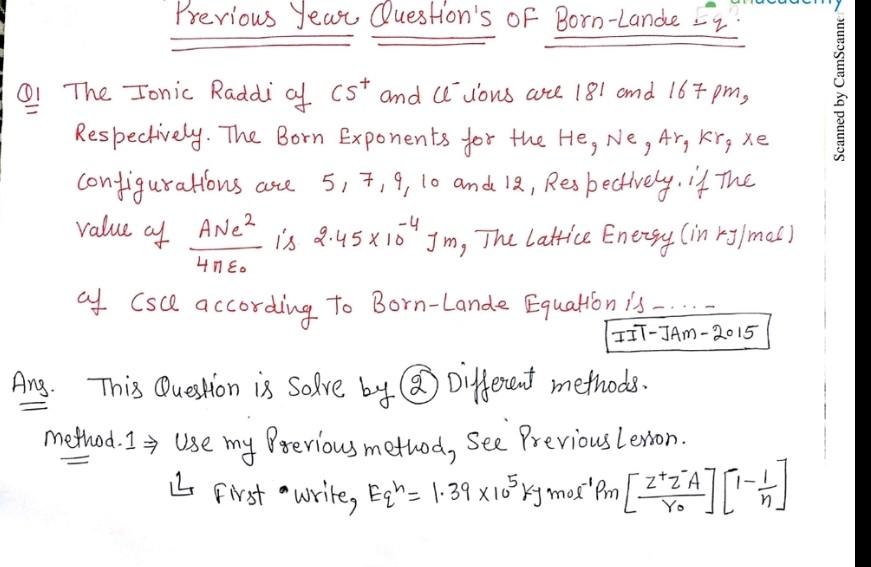 Previous Year Question's OF Born-Lande Eq.
Q1 The Ionic Raddi of CS⁺ and Cl⁻ ions are 181 and 167 pm,
Respectively. The Born Exponents for the He, Ne, Ar, Kr, Xe
configurations are 5, 7, 9, 10 and 12, Respectively. if The
value of ANe²/4πε₀ is 2.45 x 10⁻⁴ Jm, The Lattice Energy (in kJ/mol)
of CsCl according To Born-Lande Equation is -....-
IIT-JAM-2015
Ans. This Question is Solve by ② Different methods.
Method.1 ⇒ Use my Previous method, See Previous Lesson.
↳ First write, Eqⁿ = 1.39 x10⁵ kJ mol⁻¹ Pm [Z⁺Z⁻A/r₀] [1 - 1/n]
Scanned by CamScanner